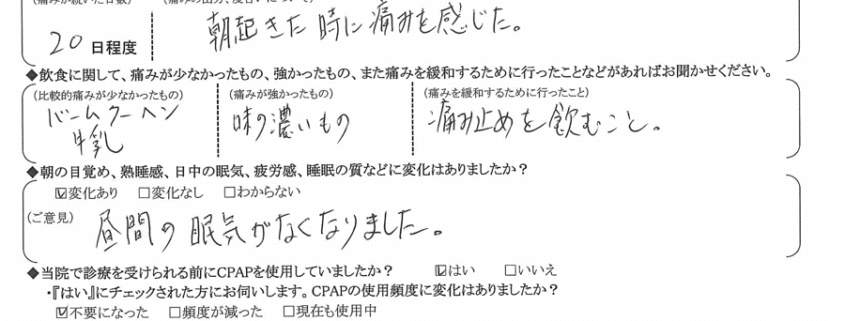 20 日程度
朝起きた時に痛みを感じた。
◆飲食に関して、痛みが少なかったもの、強かったもの、また痛みを緩和するために行ったことなどがあればお聞かせください。
(比較的痛みが少なかったもの)
バームクーヘン
牛乳
(痛みが強かったもの)
味の濃いもの
(痛みを緩和するために行ったこと)
痛み止めを飲むこと。
◆朝の目覚め、熟睡感、日中の眠気、疲労感、睡眠の質などに変化はありましたか？
☑変化あり □変化なし □わからない
(ご意見)
昼間の眠気がなくなりました。
◆当院で診療を受けられる前にCPAPを使用していましたか？ ☑はい □いいえ
・『はい』にチェックされた方にお伺いします。CPAPの使用頻度に変化はありましたか？
☑不要になった □頻度が減った □現在も使用中